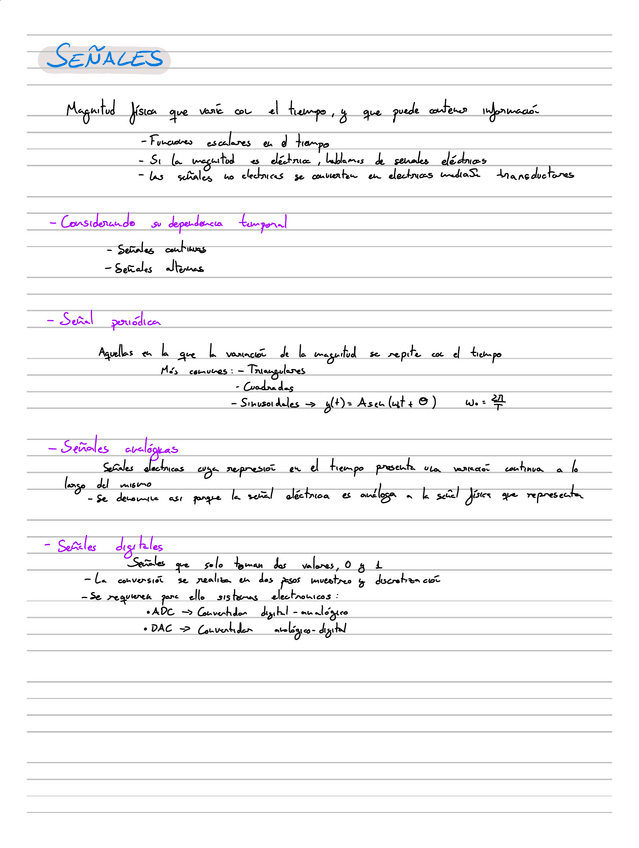 SEÑALES
Magnitud física que varíe con el tiempo, y que puede contener información
- Funciones escalares en el tiempo
- Si la magnitud es eléctrica, hablamos de señales eléctricas
- Las señales no electricas se convierten en electricas mediante transductores
- Considerando su dependencia temporal
- Señales continuas
- Señales alternas
- Señal periódica
Aquellas en la que la variación de la magnitud se repite con el tiempo
Más comunes: - Triangulares
- Cuadradas
- Sinusoidales → y(t) = A sen (ωt + θ) ω₀ = 2π/T
- Señales analógicas
Señales electricas cuya represión en el tiempo presenta una variación continua a lo
largo del mismo
- Se denomina asi porque la señal eléctrica es análoga a la señal física que representa
- Señales digitales
Señales que solo toman dos valores, 0 y 1
- La conversión se realiza en dos pasos muestreo y discretización
- Se requieren para ello sistemas electronicos:
• ADC → Convertidor digital-analógico
• DAC → Convertidor analógico-digital